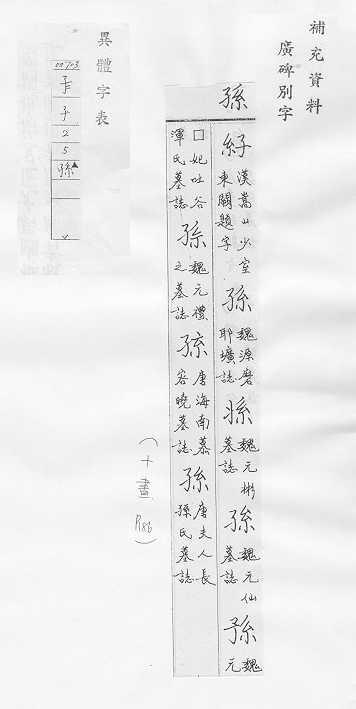 補充資料
廣碑別字
孫
漢嵩山少室東闕題字
孫 魏源磨耶壙誌
孫 魏元彬墓誌
孫 魏元仙墓誌
孫 魏元
□妃吐谷渾氏墓誌
孫 魏元禮之墓誌
孫 唐海南慕容曉墓誌
孫 唐夫人長孫氏墓誌
(十畫 R86)
異體字表
子
2
5
孫